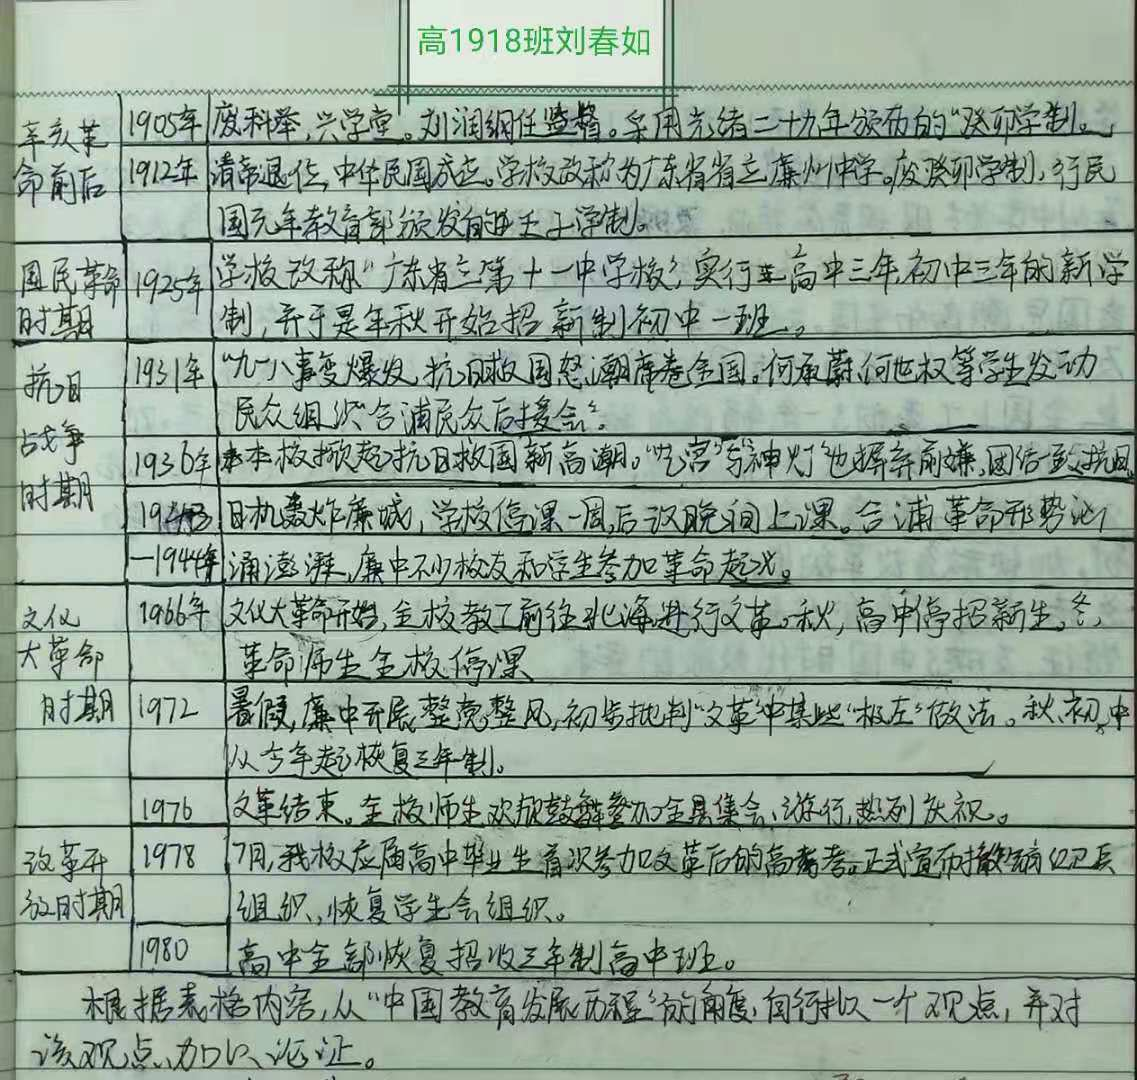 高1918班刘春如
辛亥革
命前后
1905年 废科举,兴学堂。刘润纲任监督。采用光绪二十九年颁布的“癸卯学制。
1912年 清帝退位,中华民国成立。学校改称为广东省省立廉州中学。废癸卯学制,行民
国元年教育部颁发的壬子学制。
国民革命
时期
1925年 学校改称“广东省立第十一中学校”,实行高中三年,初中三年的新学
制,并于是年秋开始招新制初中一班。
抗日
战争
时期
1931年 “九一八事变爆发,抗日救国怒潮席卷全国。何承蔚何世权等学生发动
民众组织“合浦民众后援会”。
1936年 本校掀起抗日救国新高潮。“乞宫”与“神灯”也摒弃前嫌,团结一致抗日。
1943 日机轰炸廉城,学校停课一周,后改晚间上课。合浦革命形势汹
—1944年 涌澎湃,廉中不少校友和学生参加革命起义。
文化
大革命
时期
1966年 文化大革命开始,全校教工前往北海进行文革。秋,高中停招新生。冬,
革命师生全校停课
1972 暑假,廉中开展整党整风,初步批判“文革”中某些“极左”做法。秋,初中
从今年起恢复三年制。
1976 文革结束。全校师生欢欣鼓舞参加全县集会、游行,热烈庆祝。
改革开
放时期
1978 7月,我校应届高中毕业生首次参加文革后的高考。正式宣布撤销红卫兵
组织,恢复学生会组织。
1980 高中全部恢复招收三年制高中班。
根据表格内容,从“中国教育发展历程”的角度,自行拟一个观点,并对
该观点加以论证。